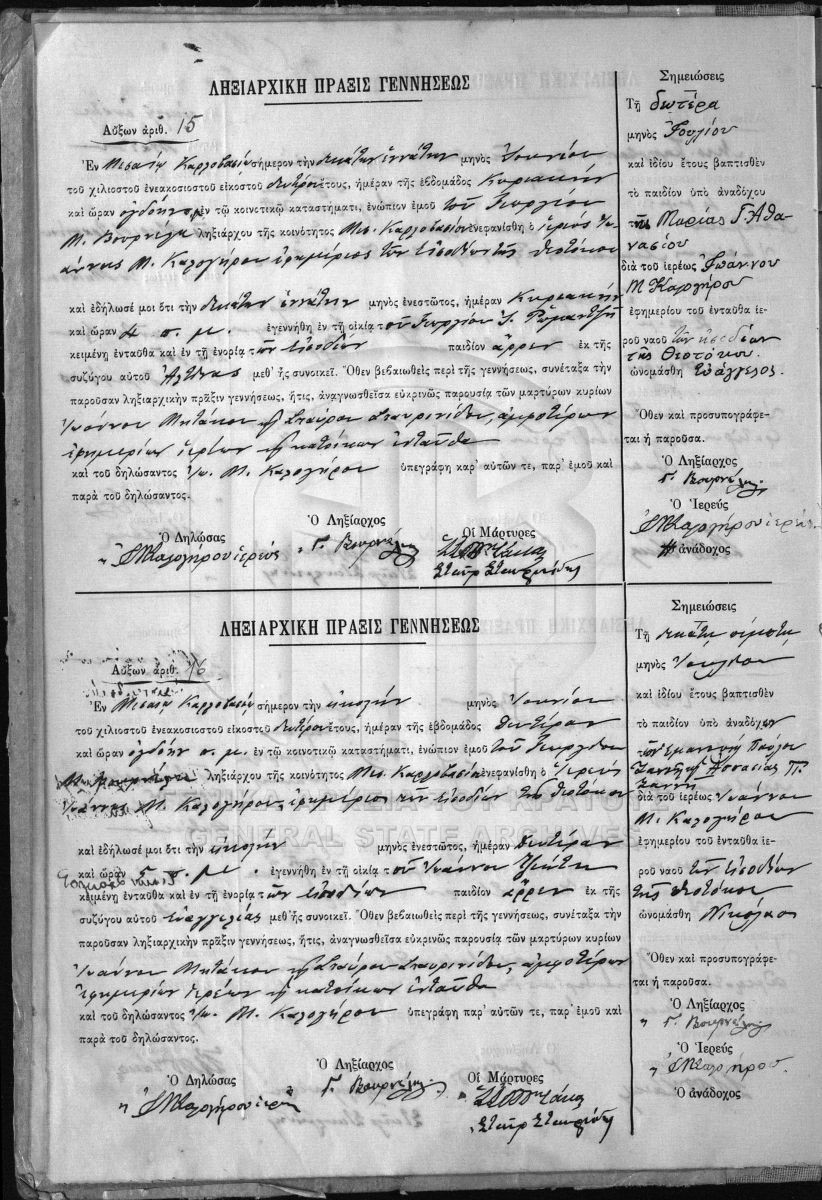 ΛΗΞΙΑΡΧΙΚΗ ΠΡΑΞΙΣ ΓΕΝΝΗΣΕΩΣ
Αὔξων ἀριθ. 15
Ἐν Μεσαίῳ Καρλοβασίῳ σήμερον τὴν δεκάτην ἐννάτην μηνὸς Ἰουνίου
τοῦ χιλιοστοῦ ἐνεακοσιοστοῦ εἰκοστοῦ δευτέρου ἔτους, ἡμέραν τῆς ἑβδομάδος Κυριακὴν
καὶ ὥραν ὀγδόην ἐν τῷ κοινοτικῷ καταστήματι, ἐνώπιον ἐμοῦ τοῦ Γεωργίου
Μ. ληξιάρχου τῆς κοινότητος Μεσ. Καρλοβασίου ἐνεφανίσθη ὁ ἱερεὺς Ἰω-
άννης Μ. Καλογήρου ἐφημέριος τῶν Εἰσοδίων τῆς Θεοτόκου
καὶ ἐδήλωσέ μοι ὅτι τὴν δεκάτην ἐννάτην μηνὸς ἐνεστῶτος, ἡμέραν Κυριακὴν
καὶ ὥραν 4 π. μ. ἐγεννήθη ἐν τῇ οἰκίᾳ τοῦ Γεωργίου
κειμένῃ ἐνταῦθα καὶ ἐν τῇ ἐνορίᾳ τῶν Εἰσοδίων παιδίον ἄρρεν ἐκ τῆς
συζύγου αὐτοῦ μεθ᾽ ἧς συνοικεῖ. Ὅθεν βεβαιωθεὶς περὶ τῆς γεννήσεως, συνέταξα τὴν
παροῦσαν ληξιαρχικὴν πρᾶξιν γεννήσεως, ἥτις, ἀναγνωσθεῖσα εὐκρινῶς παρουσίᾳ τῶν μαρτύρων κυρίων
Ἰωάννου Μητάκου καὶ Σταύρου Σταυρινίδου, ἀμφοτέρων
ἐφημερίων ἱερέων καὶ κατοίκων ἐνταῦθα
καὶ τοῦ δηλώσαντος Ἰω. Μ. Καλογήρου ὑπεγράφη παρ᾽ αὐτῶν τε, παρ᾽ ἐμοῦ καὶ
παρὰ τοῦ δηλώσαντος.
Ὁ Δηλώσας
Ὁ Ληξίαρχος
Οἱ Μάρτυρες
Σημειώσεις
Τῇ δευτέρᾳ
μηνὸς Ἰουλίου
καὶ ἰδίου ἔτους βαπτισθὲν
τὸ παιδίον ὑπὸ ἀναδόχου
τῆς Μαρίας Γ. Αθα-
νασίου
διὰ τοῦ ἱερέως Ἰωάννου
Μ. Καλογήρου
ἐφημερίου τοῦ ἐνταῦθα ἱε-
ροῦ ναοῦ τῶν εἰσοδίων
τῆς Θεοτόκου.
ὠνομάσθη Εὐάγγελος.
Ὅθεν καὶ προσυπογράφε-
ται ἡ παροῦσα.
Ὁ Ληξίαρχος
Ὁ Ἱερεύς
ἀνάδοχος
ΛΗΞΙΑΡΧΙΚΗ ΠΡΑΞΙΣ ΓΕΝΝΗΣΕΩΣ
Αὔξων ἀριθ. 16
Ἐν Μεσαίῳ Καρλοβασίῳ σήμερον τὴν εἰκοστὴν μηνὸς Ἰουνίου
τοῦ χιλιοστοῦ ἐνεακοσιοστοῦ εἰκοστοῦ δευτέρου ἔτους, ἡμέραν τῆς ἑβδομάδος Δευτέραν
καὶ ὥραν ὀγδόην π. μ. ἐν τῷ κοινοτικῷ καταστήματι, ἐνώπιον ἐμοῦ τοῦ Γεωργίου
ληξιάρχου τῆς κοινότητος Μεσ. Καρλοβασίου ἐνεφανίσθη ὁ Ἱερεὺς
Ἰωάννης Μ. Καλογήρου, ἐφημέριος τῶν εἰσοδίων τῆς Θεοτόκου
καὶ ἐδήλωσέ μοι ὅτι τὴν εἰκοστὴν μηνὸς ἐνεστῶτος, ἡμέραν Δευτέραν
καὶ ὥραν 5 π. μ. ἐγεννήθη ἐν τῇ οἰκίᾳ τοῦ Ἰωάννου
κειμένῃ ἐνταῦθα καὶ ἐν τῇ ἐνορίᾳ τῶν εἰσοδίων παιδίον ἄρρεν ἐκ τῆς
συζύγου αὐτοῦ εὐαγγελίας μεθ᾽ ἧς συνοικεῖ. Ὅθεν βεβαιωθεὶς περὶ τῆς γεννήσεως, συνέταξα τὴν
παροῦσαν ληξιαρχικὴν πρᾶξιν γεννήσεως, ἥτις, ἀναγνωσθεῖσα εὐκρινῶς παρουσίᾳ τῶν μαρτύρων κυρίων
Ἰωάννου Μητάκου καὶ Σταύρου Σταυρινίδου, ἀμφοτέρων
ἐφημερίων ἱερέων καὶ κατοίκων ἐνταῦθα
καὶ τοῦ δηλώσαντος Ἰω. Μ. Καλογήρου ὑπεγράφη παρ᾽ αὐτῶν τε, παρ᾽ ἐμοῦ καὶ
παρὰ τοῦ δηλώσαντος.
Ὁ Δηλώσας
Ὁ Ληξίαρχος
Οἱ Μάρτυρες
Σημειώσεις
Τῇ
μηνὸς Ἰουλίου
καὶ ἰδίου ἔτους βαπτισθὲν
τὸ παιδίον ὑπὸ ἀναδόχων
τῶν Εμμανουὴλ
διὰ τοῦ ἱερέως Ἰωάννου
Μ. Καλογήρου
ἐφημερίου τοῦ ἐνταῦθα ἱε-
ροῦ ναοῦ τῶν εἰσοδίων
τῆς Θεοτόκου
ὠνομάσθη Νικόλαος
Ὅθεν καὶ προσυπογράφε-
ται ἡ παροῦσα.
Ὁ Ληξίαρχος
Ὁ Ἱερεύς
Ὁ ἀνάδοχος
GENERAL STATE ARCHIVES